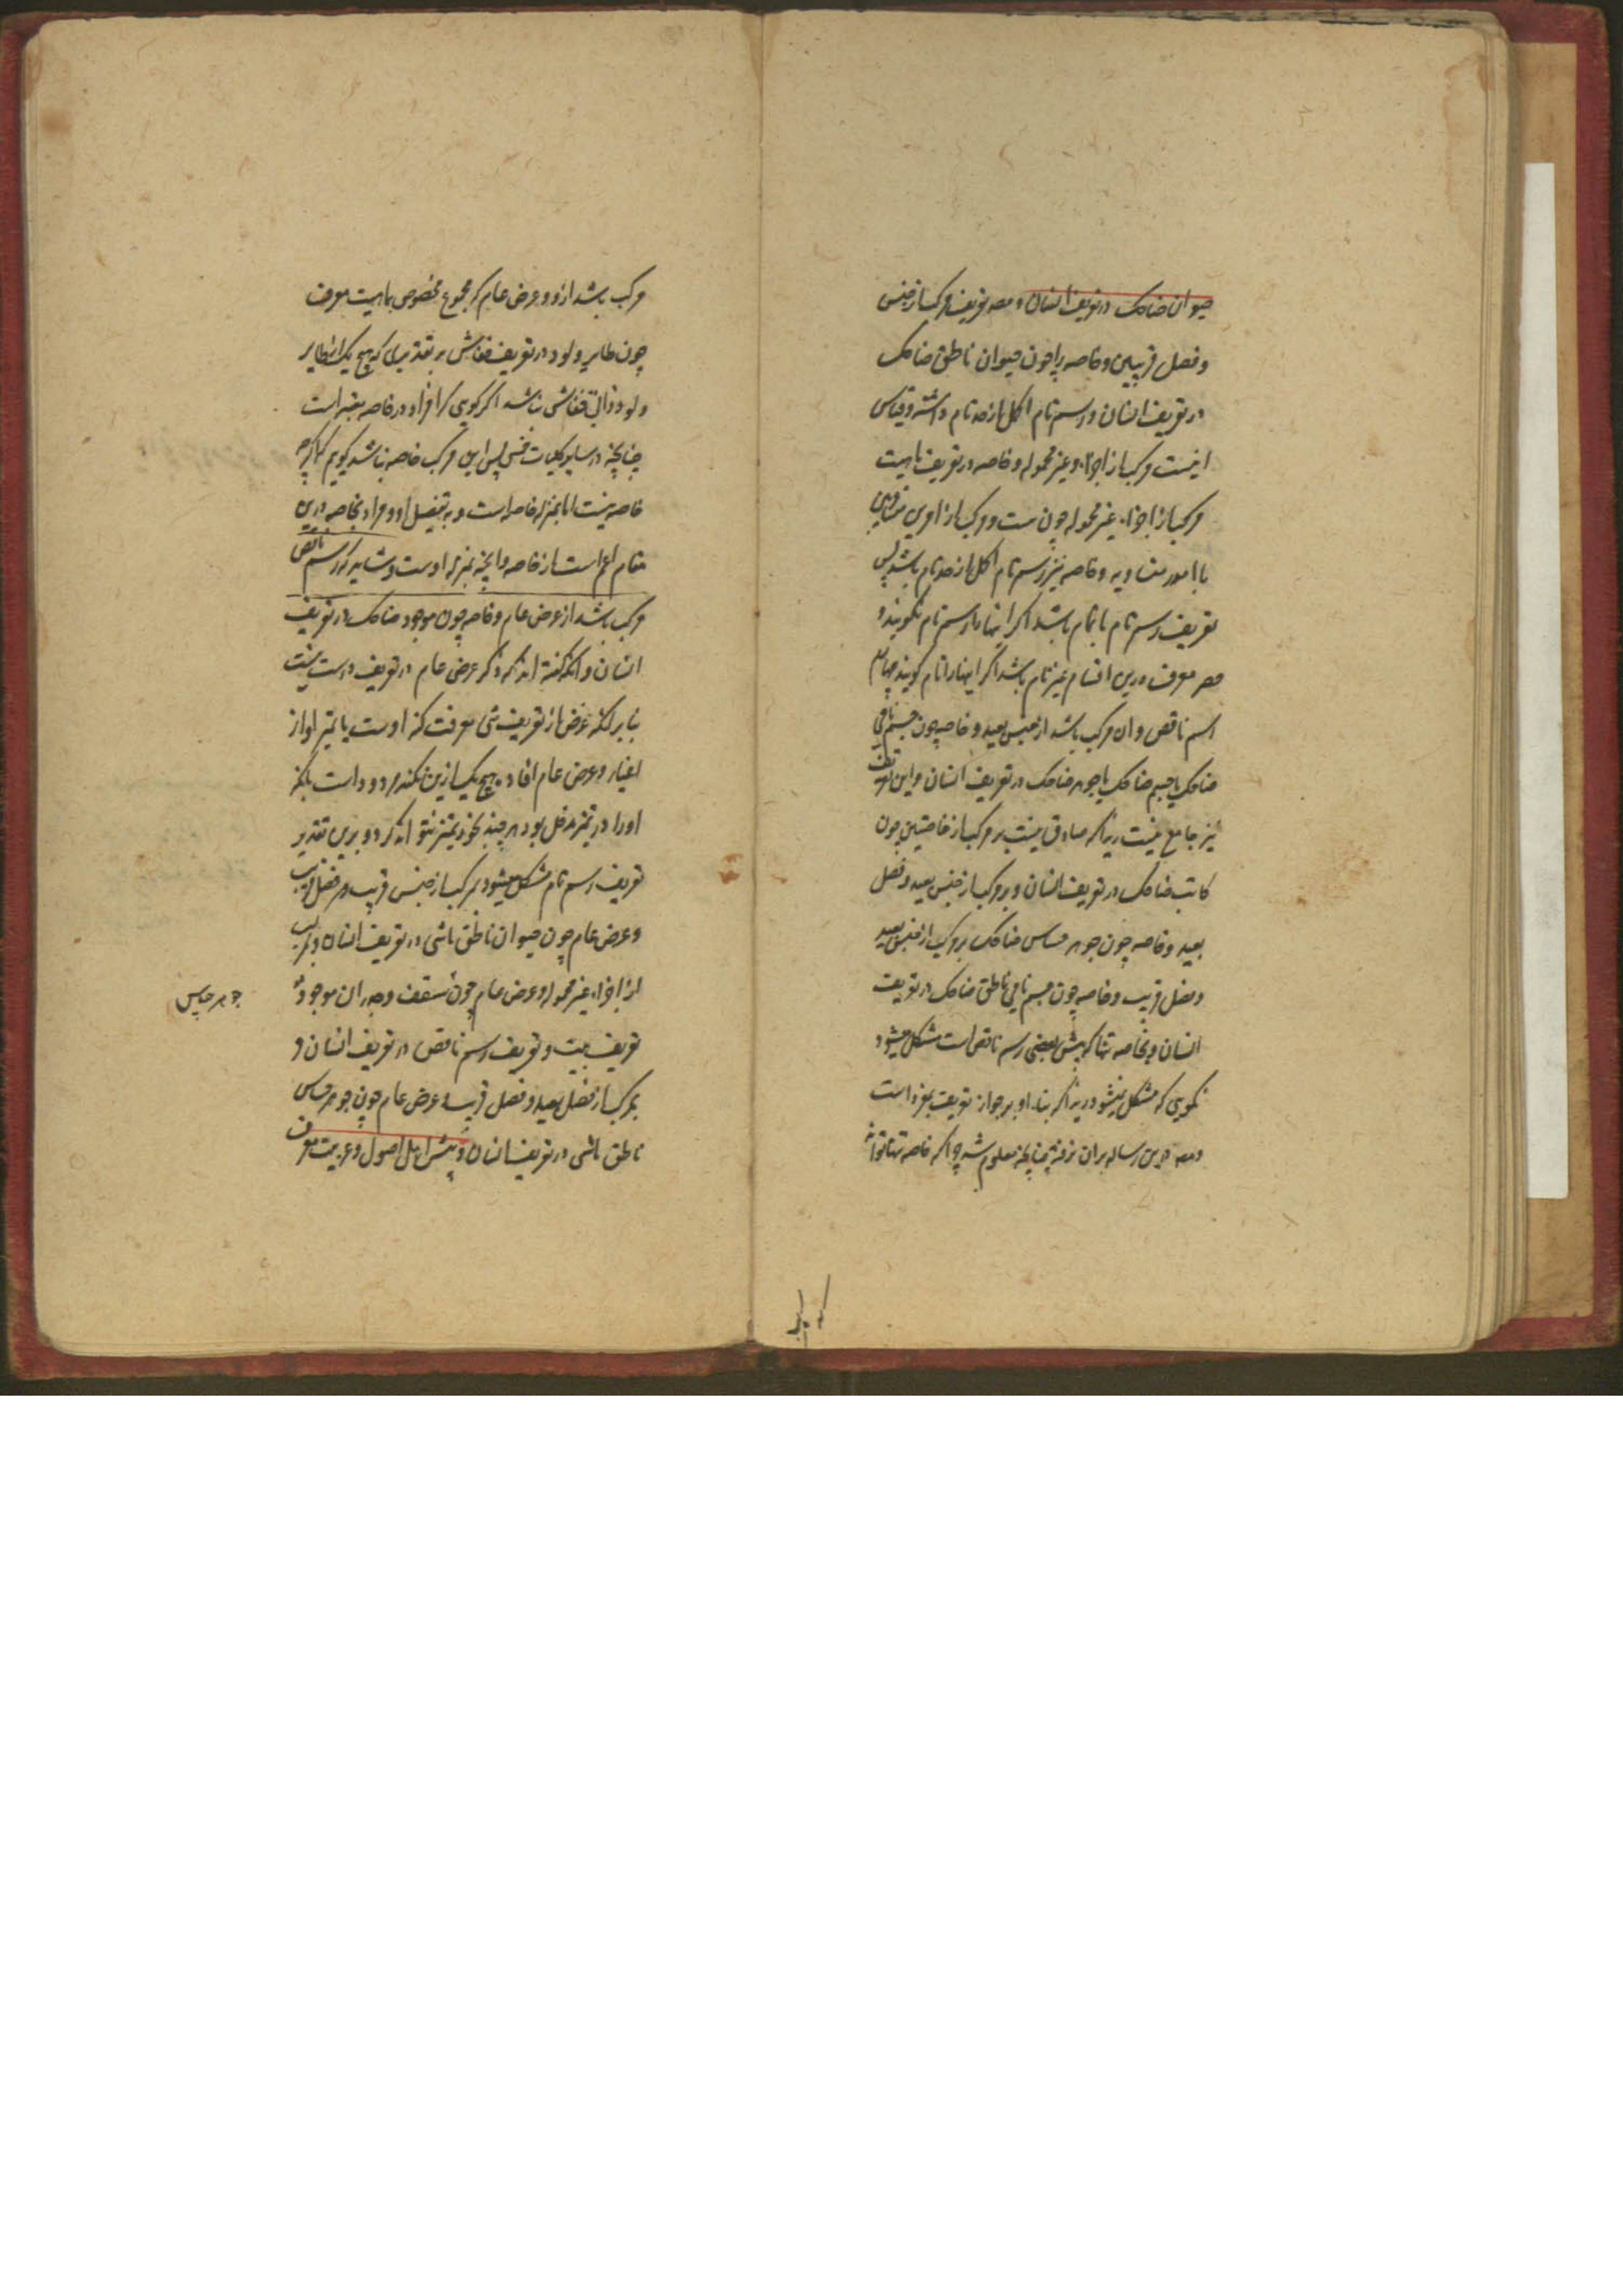 حیوان ضاحک در تعریف انسان و مصه تعریف مرکب از جنس
و فصل قریبین و خاصه را چون حیوان ناطق ضاحک
در تعریف انسان و رسم تام اکمل از حد تام داشته و قیاس
اینست مرکب از اجزاء و غیر محموله و خاصه در تعریف ماهیت
مرکب از اجزاء غیر محموله چون ست و مرکب از امرین متساویین
یا امور متساویه و خاصه نیز رسم تام اکمل از حد تام باشد پس
تعریف رسم تام ناتمام باشد اگر اینها را رسم تام نگویند و
حصر معرف درین اقسام غیر تام باشد اگر اینها را تام گویند چهارم
رسم ناقص و ان مرکب باشد از جنس بعید و خاصه چون جسم نامی
ضاحک یا جسم ضاحک یا جوهر ضاحک در تعریف انسان و این تعریف
نیز جامع نیست زیرا که صادق نیست بر مرکب از خاصتین چون
کاتب ضاحک در تعریف انسان و بر مرکب از جنس بعید و فصل
بعید و خاصه چون جوهر حساس ضاحک بر مرکب از جنس بعید
و فصل قریب و خاصه چون جسم نامی ناطق ضاحک در تعریف
انسان و بخاصه تنها که پیش بعضی رسم ناقص است مشکل میشود
نگویی که مشکل نمیشود زیرا که بناء او بر جواز تعریف بمفرد است
و مصه درین رساله بران نرفته چنانچه معلوم شد چرا که خاصه تنها
مرکب باشد از دو عرض عام که مجموع مخصوص بماهیت معرف
چون طایر ولود در تعریف خفاش بر تقدیری که هیچ یک از طایر
ولود ذاتی خفاش نباشد اگر گویی که افراد در خاصه معتبر است
چنانچه در سایر کلیات خمس پس این مرکب خاصه نباشد گویم که اگرچه
خاصه نیست اما بمنزله خاصه است و به تفصیل او و مراد بخاصه درین
مقام اعم است از خاصه و انچه بمنزله اوست و شاید که رسم ناقص
مرکب باشد از عرض عام و خاصه چون موجود ضاحک در تعریف
انسان و انکه گفته اند که ذکر عرض عام در تعریف درست نیست
بنا برانکه غرض از تعریف شی معرفت کنه اوست یا تمیز او از
اغیار و عرض عام افاده هیچ یک ازین نکند مردود است بلکه
او را در تمیز مدخل بود هر چند بخود تمیز نتواند کرد و برین تقدیر
تعریف رسم تام مشکل میشود بمرکب از جنس قریب و فصل قریب
و عرض عام چون حیوان ناطق ماشی در تعریف انسان و بمرکب
از اجزاء غیر محموله و عرض عام چون سقف و جدران موجود در
تعریف بیت و تعریف رسم ناقص در تعریف انسان و
بمرکب از فصل بعید و فصل قریب و عرض عام چون جوهر حساس
ناطق ماشی در تعریف انسان و پیش اهل اصول و عربیت معرف
جوهر حساس